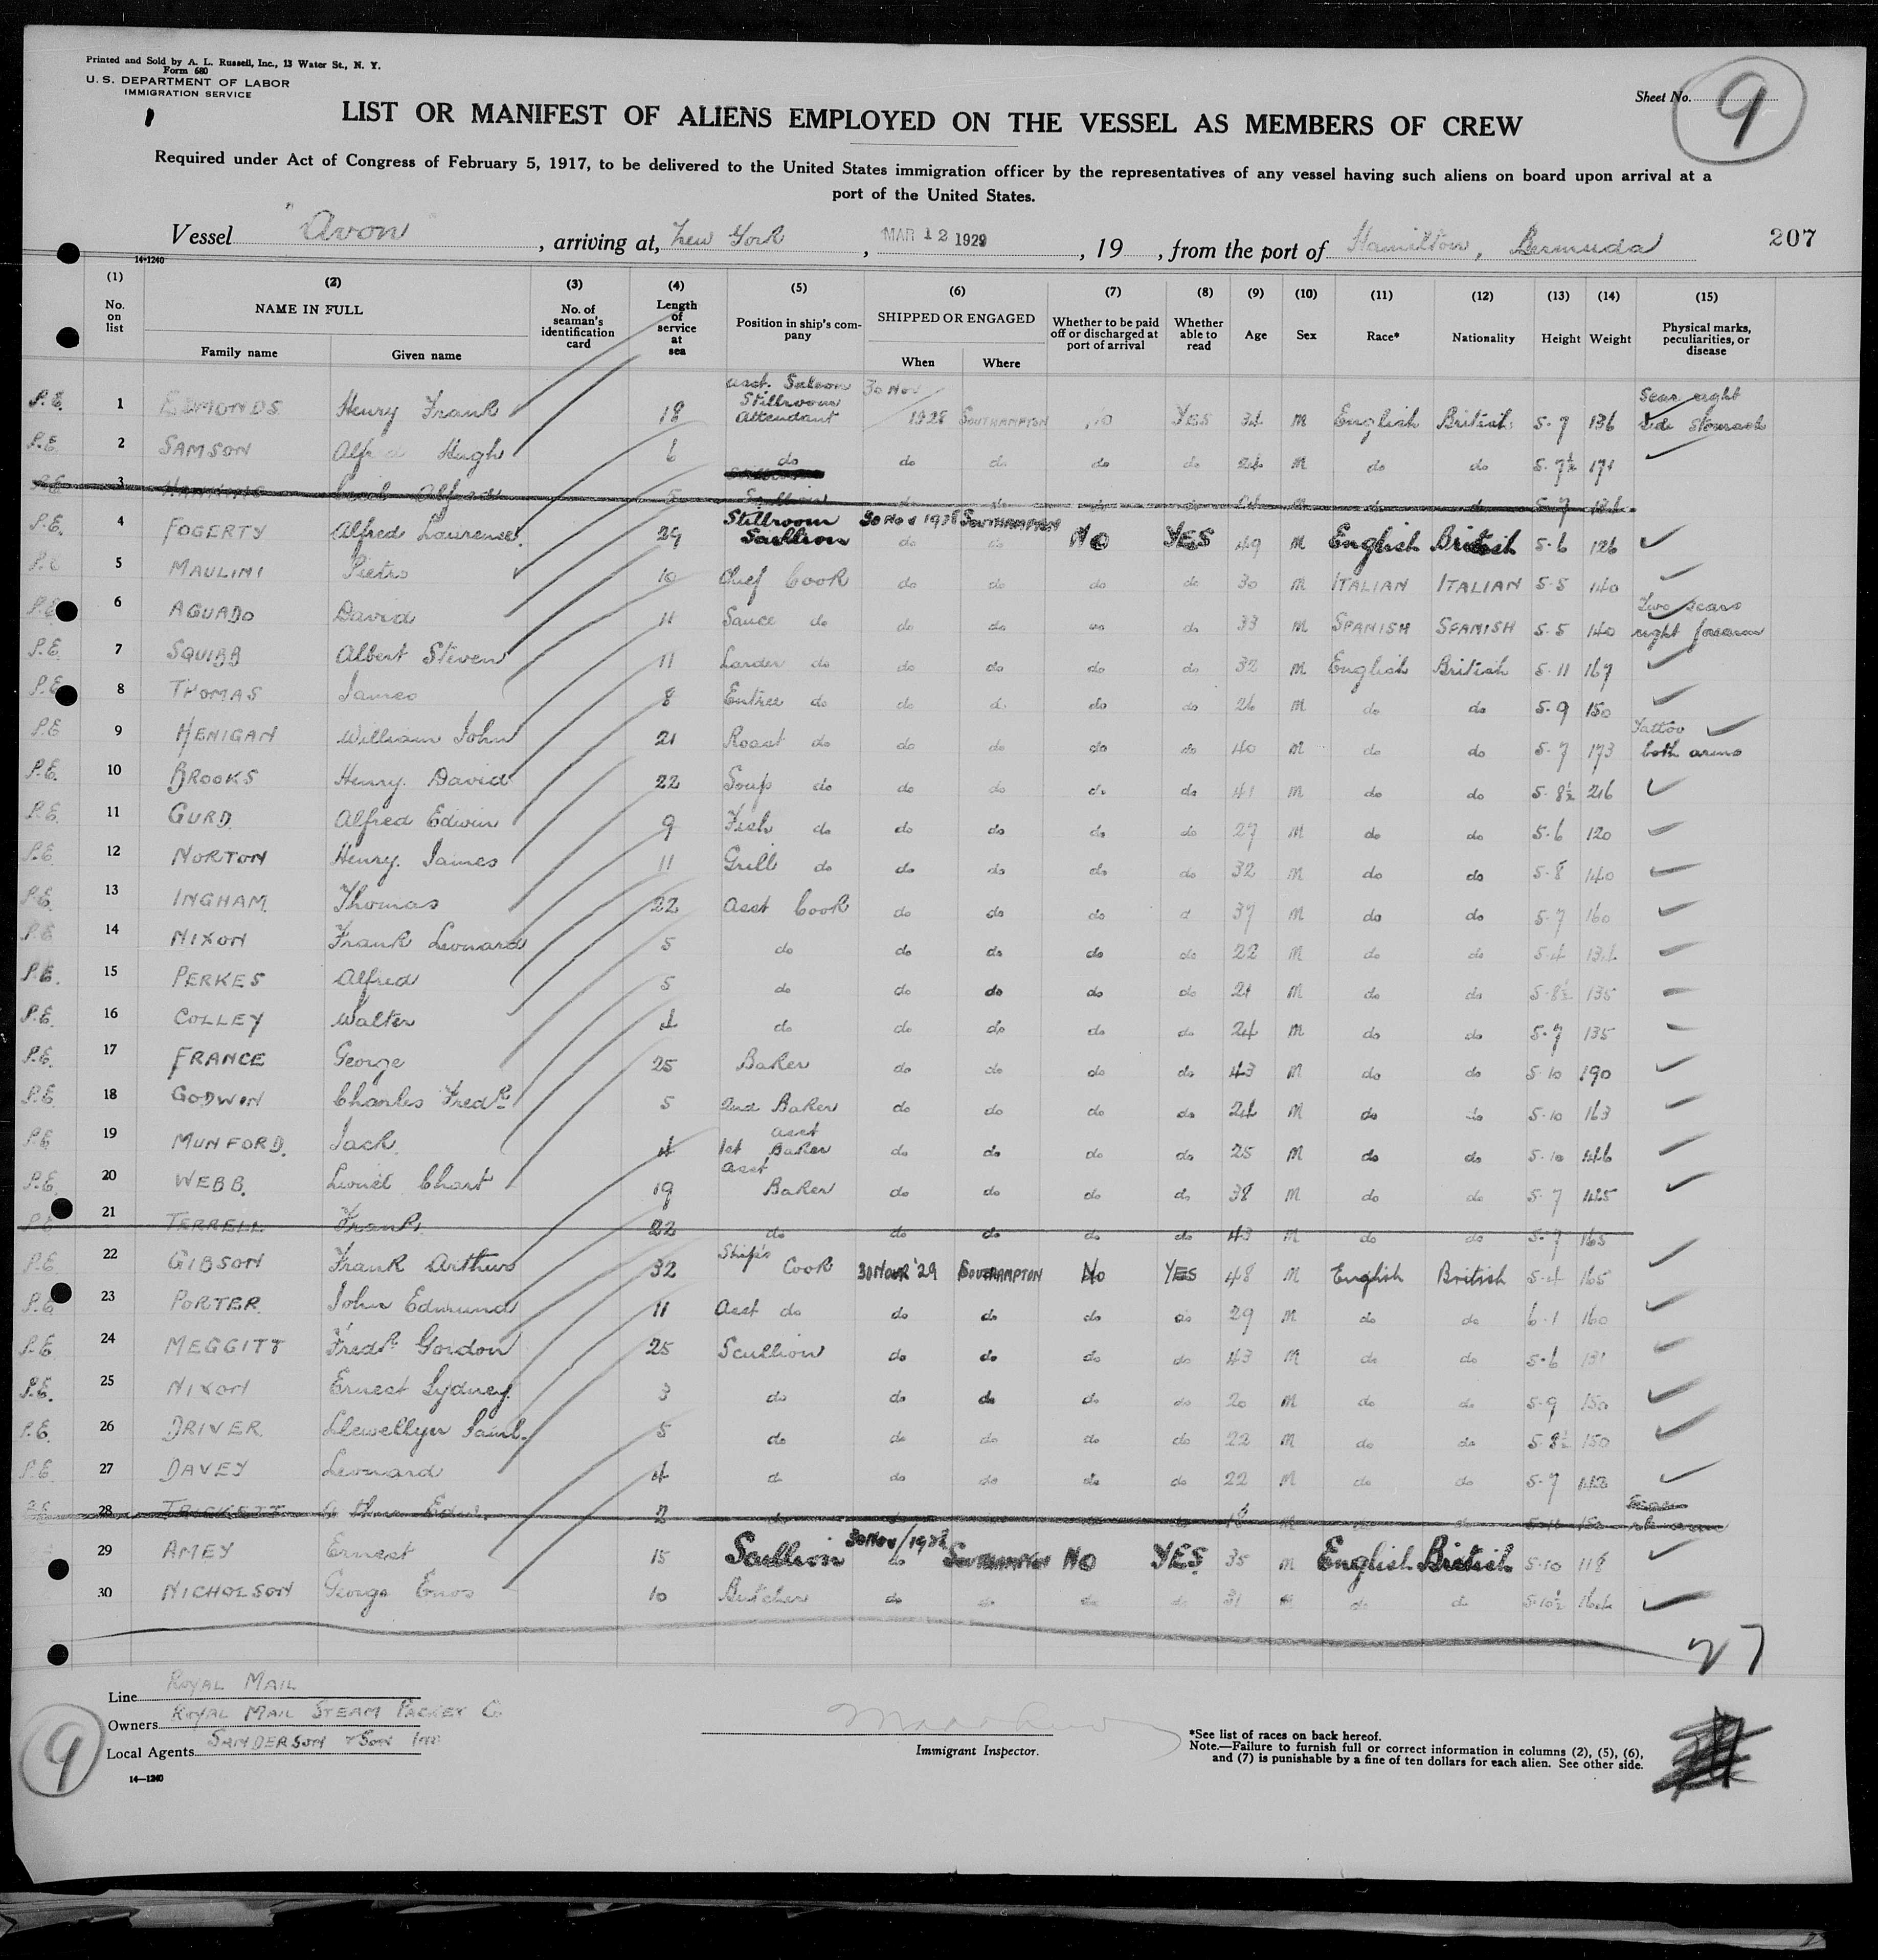 Printed and Sold by A. L. Russell, Inc., 13 Water St., N. Y.
Form 680
U. S. DEPARTMENT OF LABOR
IMMIGRATION SERVICE
Sheet No. 9
LIST OR MANIFEST OF ALIENS EMPLOYED ON THE VESSEL AS MEMBERS OF CREW
Required under Act of Congress of February 5, 1917, to be delivered to the United States immigration officer by the representatives of any vessel having such aliens on board upon arrival at a
port of the United States.
Vessel "Avon", arriving at, New York, MAR 12 1929, 19 , from the port of Hamilton, Bermuda 207
14-1240
(1) (2) (3) (4) (5) (6) (7) (8) (9) (10) (11) (12) (13) (14) (15)
No. on list NAME IN FULL Family name Given name No. of seaman's identification card Length of service at sea Position in ship's company SHIPPED OR ENGAGED When Where Whether to be paid off or discharged at port of arrival Whether able to read Age Sex Race* Nationality Height Weight Physical marks, peculiarities, or disease
P.E. 1 EDMONDS Henry Frank 18 asst. Saloon Stillroom Attendant 30 Nov 1928 SOUTHAMPTON no YES 34 M English British 5-7 136 Scar right side stomach
P.E. 2 SAMSON Alfred Hugh 6 do do do do do 24 M do do 5-7½ 171
P.E. 3 Cecil Alfred 5 Scullion do do do do 24 M do do 5-7
P.E. 4 FOGERTY Alfred Laurence 29 Stillroom Scullion 30 Nov 1928 SOUTHAMPTON do do NO YES 49 M English British 5-6 126
P.E. 5 MAULINI Pietro 10 Chief Cook do do do do 30 M ITALIAN ITALIAN 5-5 140
P.E. 6 AGUADO David 11 Sauce do do do do do 33 M SPANISH SPANISH 5-5 140 Two scars right forearm
P.E. 7 SQUIBB Albert Steven 11 Larder do do do do do 32 M English British 5-11 167
P.E. 8 THOMAS James 8 Entree do do do do do 26 M do do 5-9 150
P.E. 9 HENIGAN William John 21 Roast do do do do do 40 M do do 5-7 173 Tattoo both arms
P.E. 10 BROOKS Henry David 22 Soup do do do do do 41 M do do 5-8½ 216
P.E. 11 GURD. Alfred Edwin 9 Fish do do do do do 27 M do do 5-6 120
P.E. 12 NORTON Henry James 11 Grill do do do do do 32 M do do 5-8 140
P.E. 13 INGHAM. Thomas 22 asst Cook do do do d 37 M do do 5-7 160
P.E. 14 NIXON Frank Leonard 5 do do do do do 22 M do do 5-4 134
P.E. 15 PERKES Alfred 5 do do do do do 21 M do do 5-8½ 135
P.E. 16 COLLEY Walter 4 do do do do do 24 M do do 5-7 135
P.E. 17 FRANCE George 25 Baker do do do do 43 M do do 5-10 190
P.E. 18 GODWIN Charles Fredk. 5 2nd Baker do do do do 24 M do do 5-10 163
P.E. 19 MUNFORD. Jack. 4 1st asst Baker do do do do 25 M do do 5-10 146
P.E. 20 WEBB. Lionel Chart 19 asst Baker do do do do 38 M do do 5-7 125
P.E. 21 TERRELL Frank. 22 do do do do do 43 M do do 5-7 165
P.E. 22 GIBSON Frank Arthur 32 Ship's Cook 30 Nov '29 SOUTHAMPTON No YES 48 M English British 5-4 165
P.E. 23 PORTER. John Edmund 11 Asst do do do do do 29 M do do 6-1 160
P.E. 24 MEGGITT Fredk. Gordon 25 Scullion do do do do 43 M do do 5-6 131
P.E. 25 NIXON Ernest Sydney. 3 do do do do do 20 M do do 5-9 150
P.E. 26 DRIVER. Llewellyn Saml. 5 do do do do do 22 M do do 5-8½ 150
P.E. 27 DAVEY Leonard 4 d do do do do 22 M do do 5-7
P.E. 28 TRICKETT Arthur Edw. 2 do do do do do 18 M do do 5-11 Scar rt arm
29 AMEY Ernest 15 Scullion 30 Nov/1928 do SOUTHAMPTON NO YES 35 M English British 5-10 118
30 NICHOLSON George Enos 10 Butcher do do do do 31 M do do 5-10½
27
Line ROYAL MAIL
Owners ROYAL MAIL STEAM PACKET Co
Local Agents SANDERSON & SON INC
9
14-1240
Immigrant Inspector.
*See list of races on back hereof.
Note.—Failure to furnish full or correct information in columns (2), (5), (6),
and (7) is punishable by a fine of ten dollars for each alien. See other side.